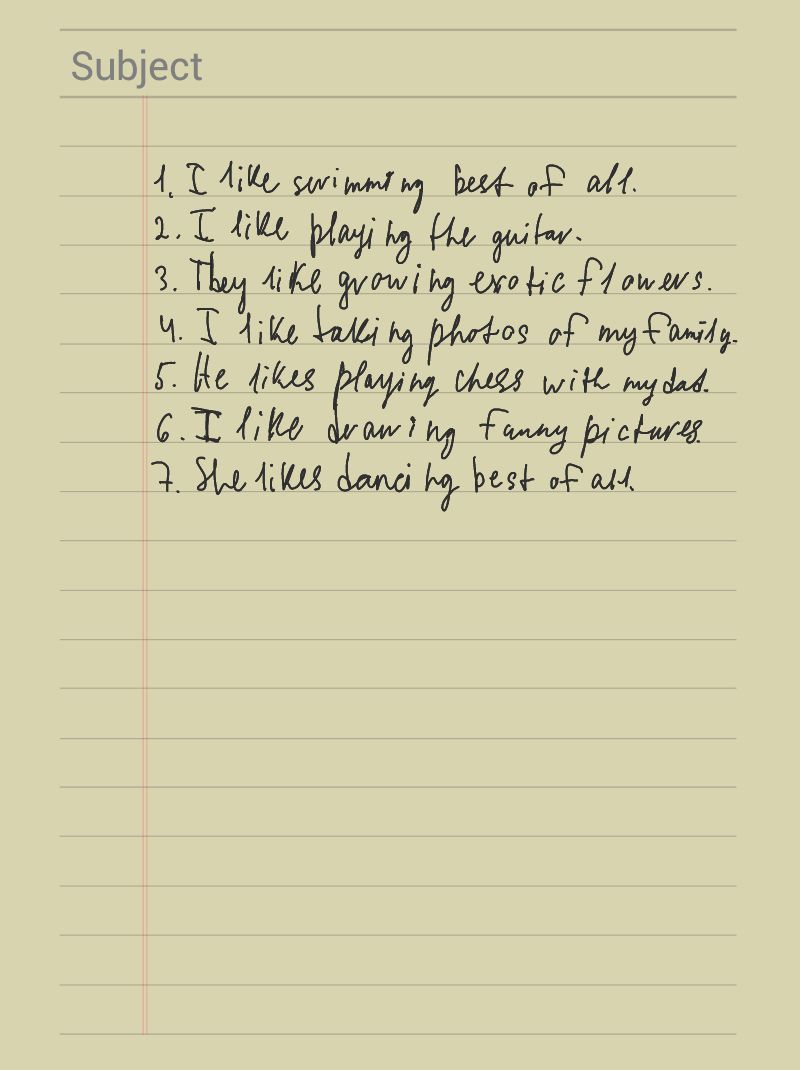 Subject
1. I like swimming best of all.
2. I like playing the guitar.
3. They like growing exotic flowers.
4. I like taking photos of my family.
5. He likes playing chess with my dad.
6. I like drawing funny pictures.
7. She likes dancing best of all.